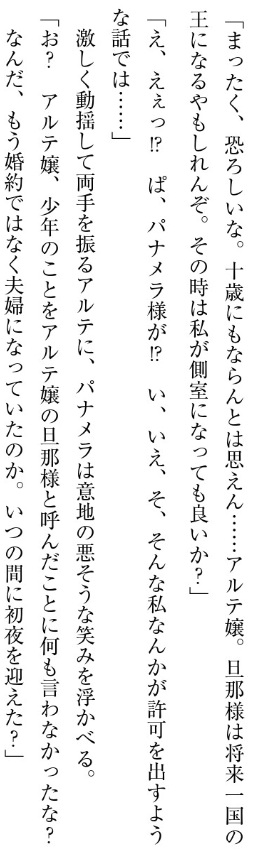 「まったく、恐ろしいな。十歳にもならんとは思えん……アルテ嬢。旦那様は将来一国の
王になるやもしれんぞ。その時は私が側室になっても良いか？」
「え、えぇっ⁉　ぱ、パナメラ様が⁉　い、いえ、そ、そんな私なんかが許可を出すよう
な話では……」
　激しく動揺して両手を振るアルテに、パナメラは意地の悪そうな笑みを浮かべる。
「お？　アルテ嬢、少年のことをアルテ嬢の旦那様と呼んだことに何も言わなかったな？
なんだ、もう婚約ではなく夫婦になっていたのか。いつの間に初夜を迎えた？」